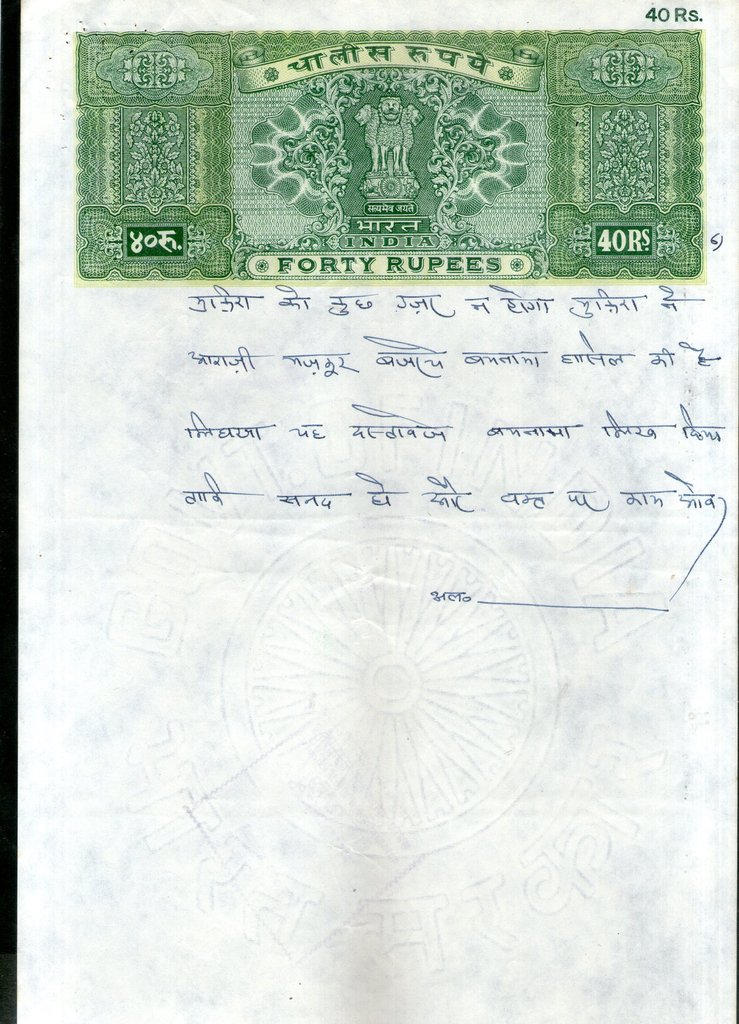 40 Rs.
चालीस रूपये
सत्यमेव जयते
भारत
INDIA
४०रु.
40RS
FORTY RUPEES
6)
मुकिरा को कुछ उज़्र न होगा मुकिरा ने
आराज़ी मज़कूर बज़रिये बयनामा हासिल की है
लिहाजा यह दस्तावेज बयनामा लिख दिया
ताकि सनद हो और वक्त पर काम आवे
अल०
GOVT. OF INDIA
भारत सरकार